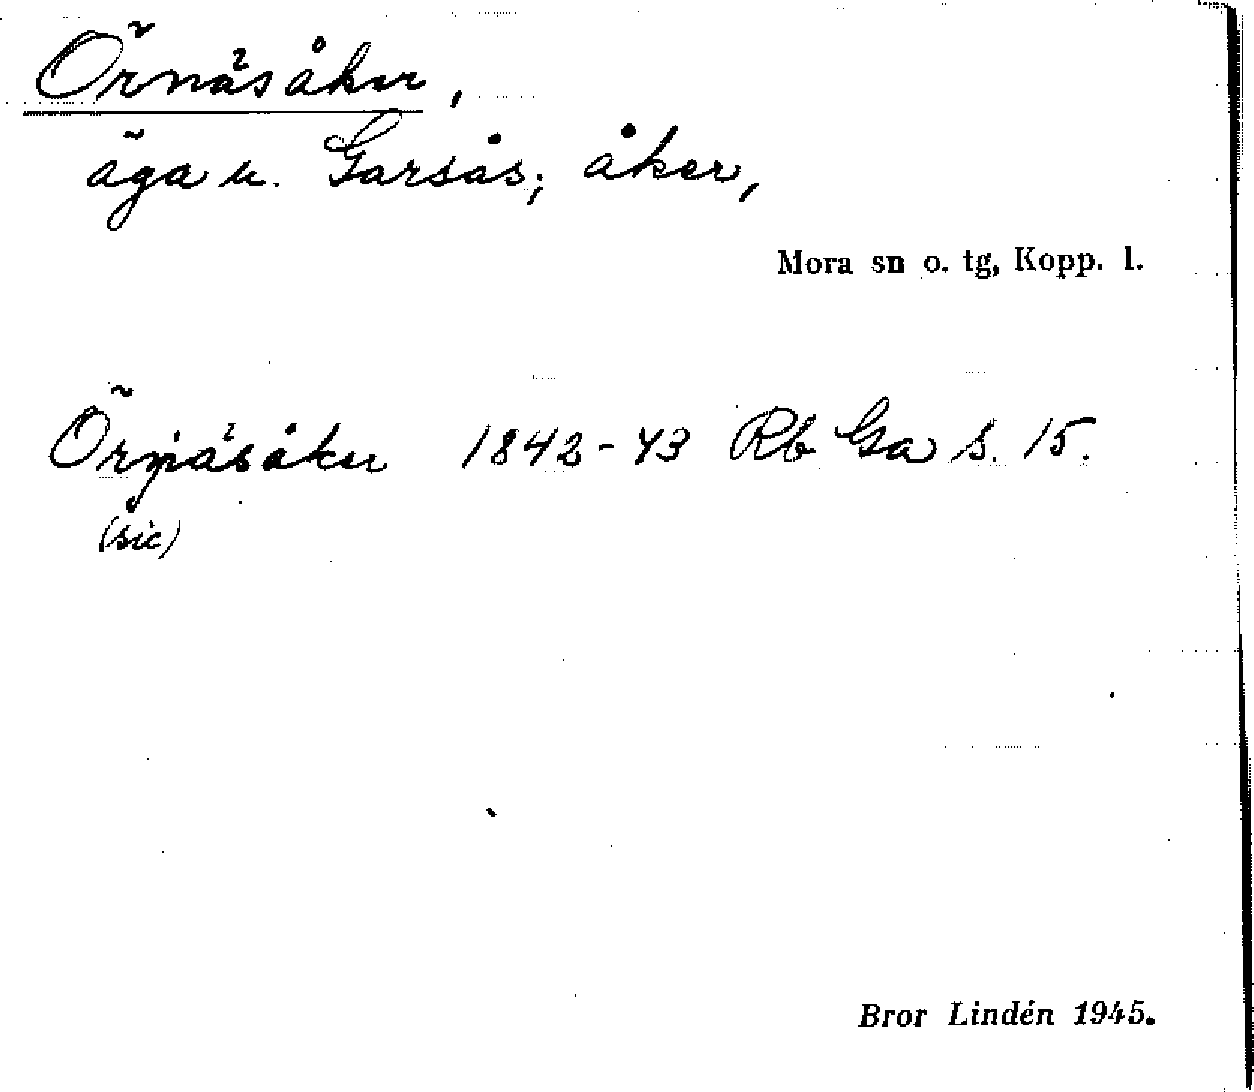 Örnäsåker,
äga u. Garsås; åker,
Mora sn o. tg, Kopp. l.
Örnjäsåker 1842-43 Rb Ga s. 15.
(sic)
Bror Lindén 1945.